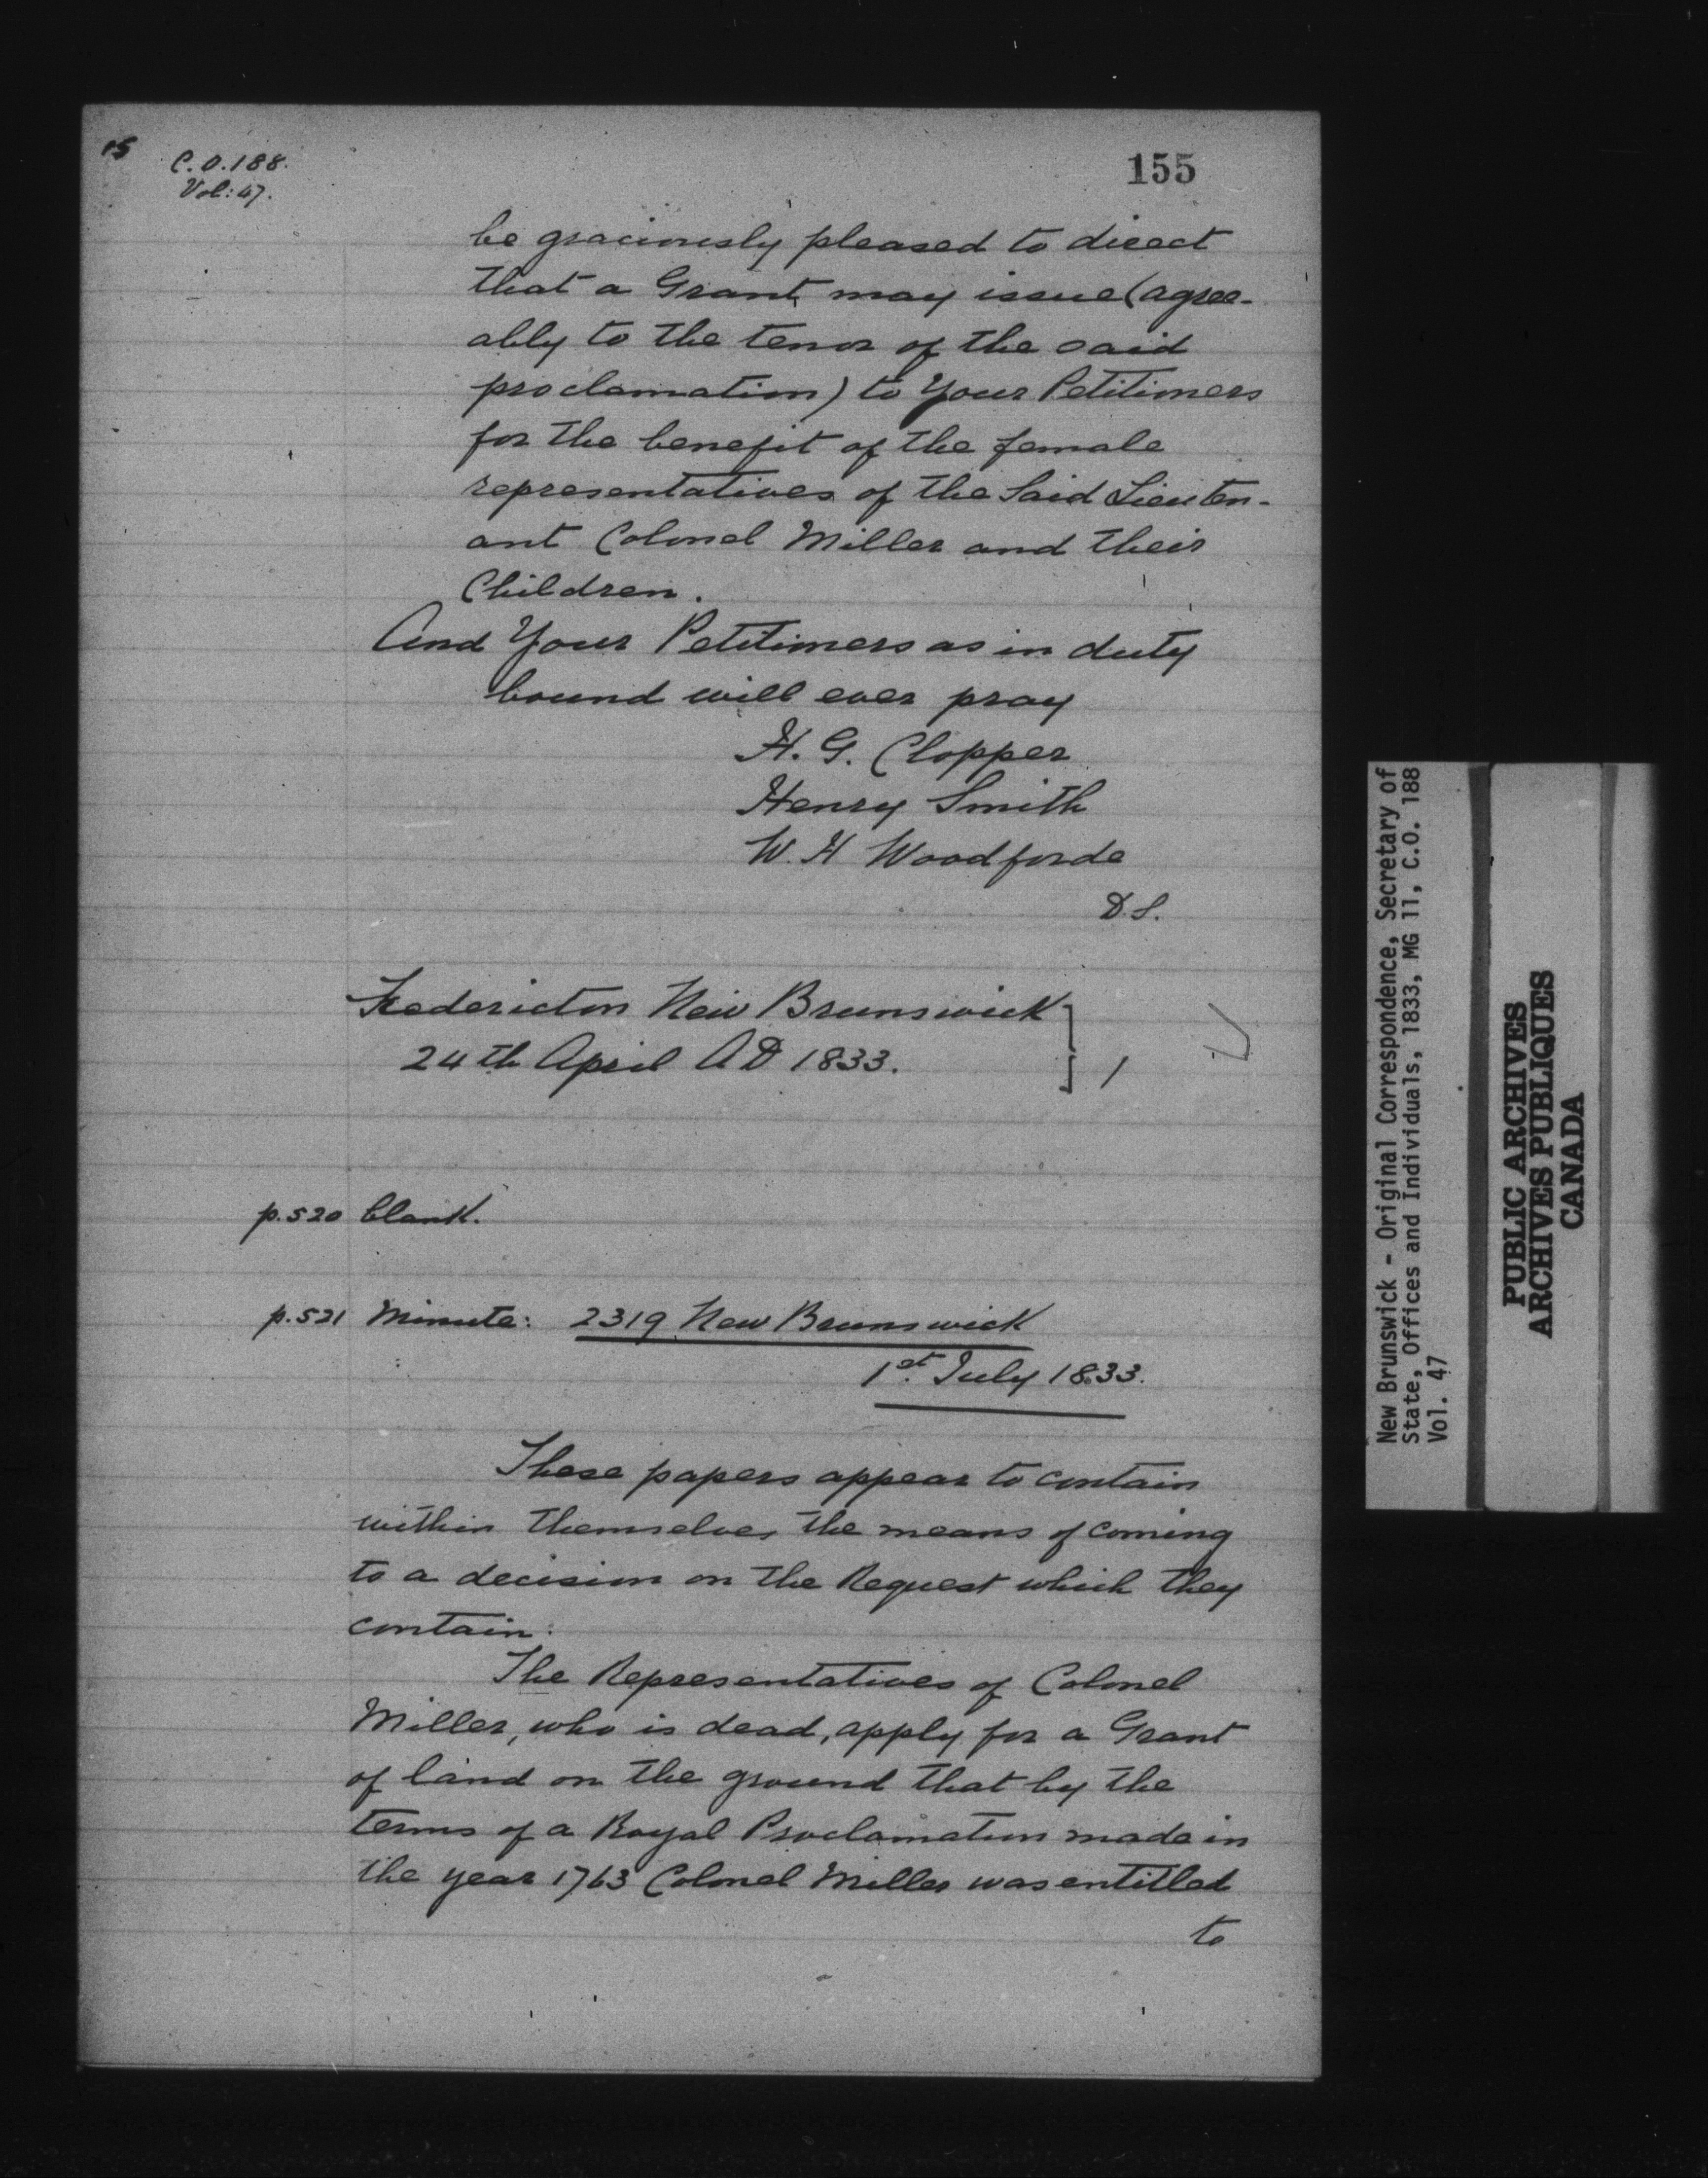 15
C.O. 188.
Vol: 47.
155
be graciously pleased to direct
that a Grant may issue (agree-
ably to the tenor of the said
proclamation) to Your Petitioners
for the benefit of the female
representatives of the Said Lieuten-
ant Colonel Miller and their
Children.
And Your Petitioners as in duty
bound will ever pray
H. G. Clopper
Henry Smith
W. H Woodforde
D.S.
Fredericton New Brunswick
24th April AD 1833.
p.520 blank.
p.521 Minute: 2319 New Brunswick
1st. July 1833.
These papers appear to contain
within themselves the means of coming
to a decision on the Request which they
contain:
The Representatives of Colonel
Miller, who is dead, apply for a Grant
of land on the ground that by the
terms of a Royal Proclamation made in
the year 1763 Colonel Miller was entitled
to
New Brunswick - Original Correspondence, Secretary of
State, Offices and Individuals, 1833, MG 11, C.O. 188
Vol. 47
PUBLIC ARCHIVES
ARCHIVES PUBLIQUES
CANADA